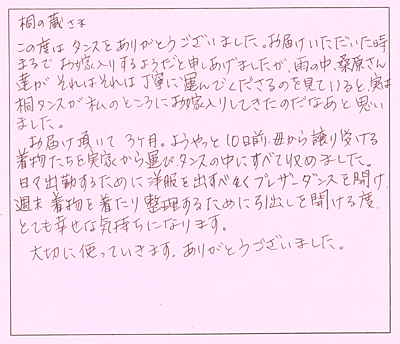 桐の蔵さま
この度はタンスをありがとうございました。お届けいただいた時
まるでお嫁入りするようだと申しあげましたが、雨の中、桑原さん
達がそれはそれは丁寧に運んでくださるのを見ていると、実は
桐タンスが私のところにお嫁入りしてきたのだなあと思い
ました。
お届け頂いて3ヶ月。ようやっと10日前、母から譲り受ける
着物たちを実家から運びタンスの中にすべて収めました。
日々出勤するために洋服を出すべくブレザーダンスを開け、
週末着物を着たり整理するために引出しを開ける度、
とても幸せな気持ちになります。
大切に使っていきます。ありがとうございました。